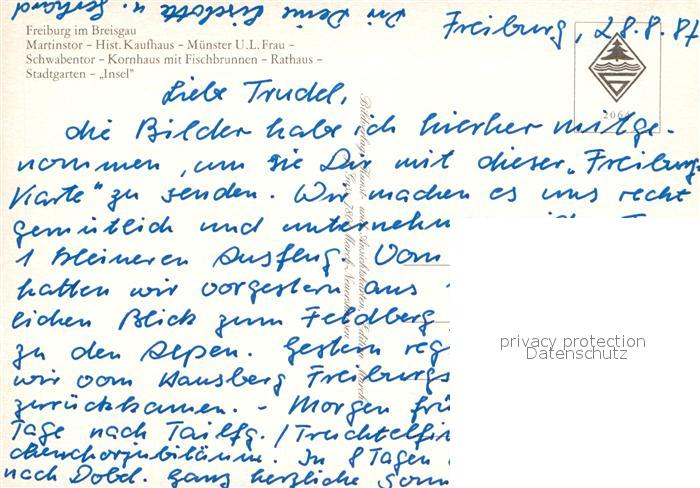 Dir Deine Liselotte u. Gerhard
Freiburg im Breisgau
Martinstor – Hist. Kaufhaus – Münster U.L. Frau –
Schwabentor – Kornhaus mit Fischbrunnen – Rathaus –
Stadtgarten – „Insel"
Freiburg, 28.8.87
Liebe Trudel,
die Bilder habe ich hierher mitge-
nommen, um sie Dir mit dieser „Freiburg
Karte" zu senden. Wir machen es uns recht
gemütlich und unternehm
1 kleineren Ausflug. Vom
hatten wir vorgestern aus
lichen Blick zum Feldberg
zu den Alpen. Gestern reg
wir vom Hausberg Freiburgs
zurückkamen. - Morgen frü
Tage nach Tailfg. /Truchtelfin
chenchorjubiläum. In 8 Tagen
nach Dobd. Ganz herzliche Sonn
privacy protection
Datenschutz